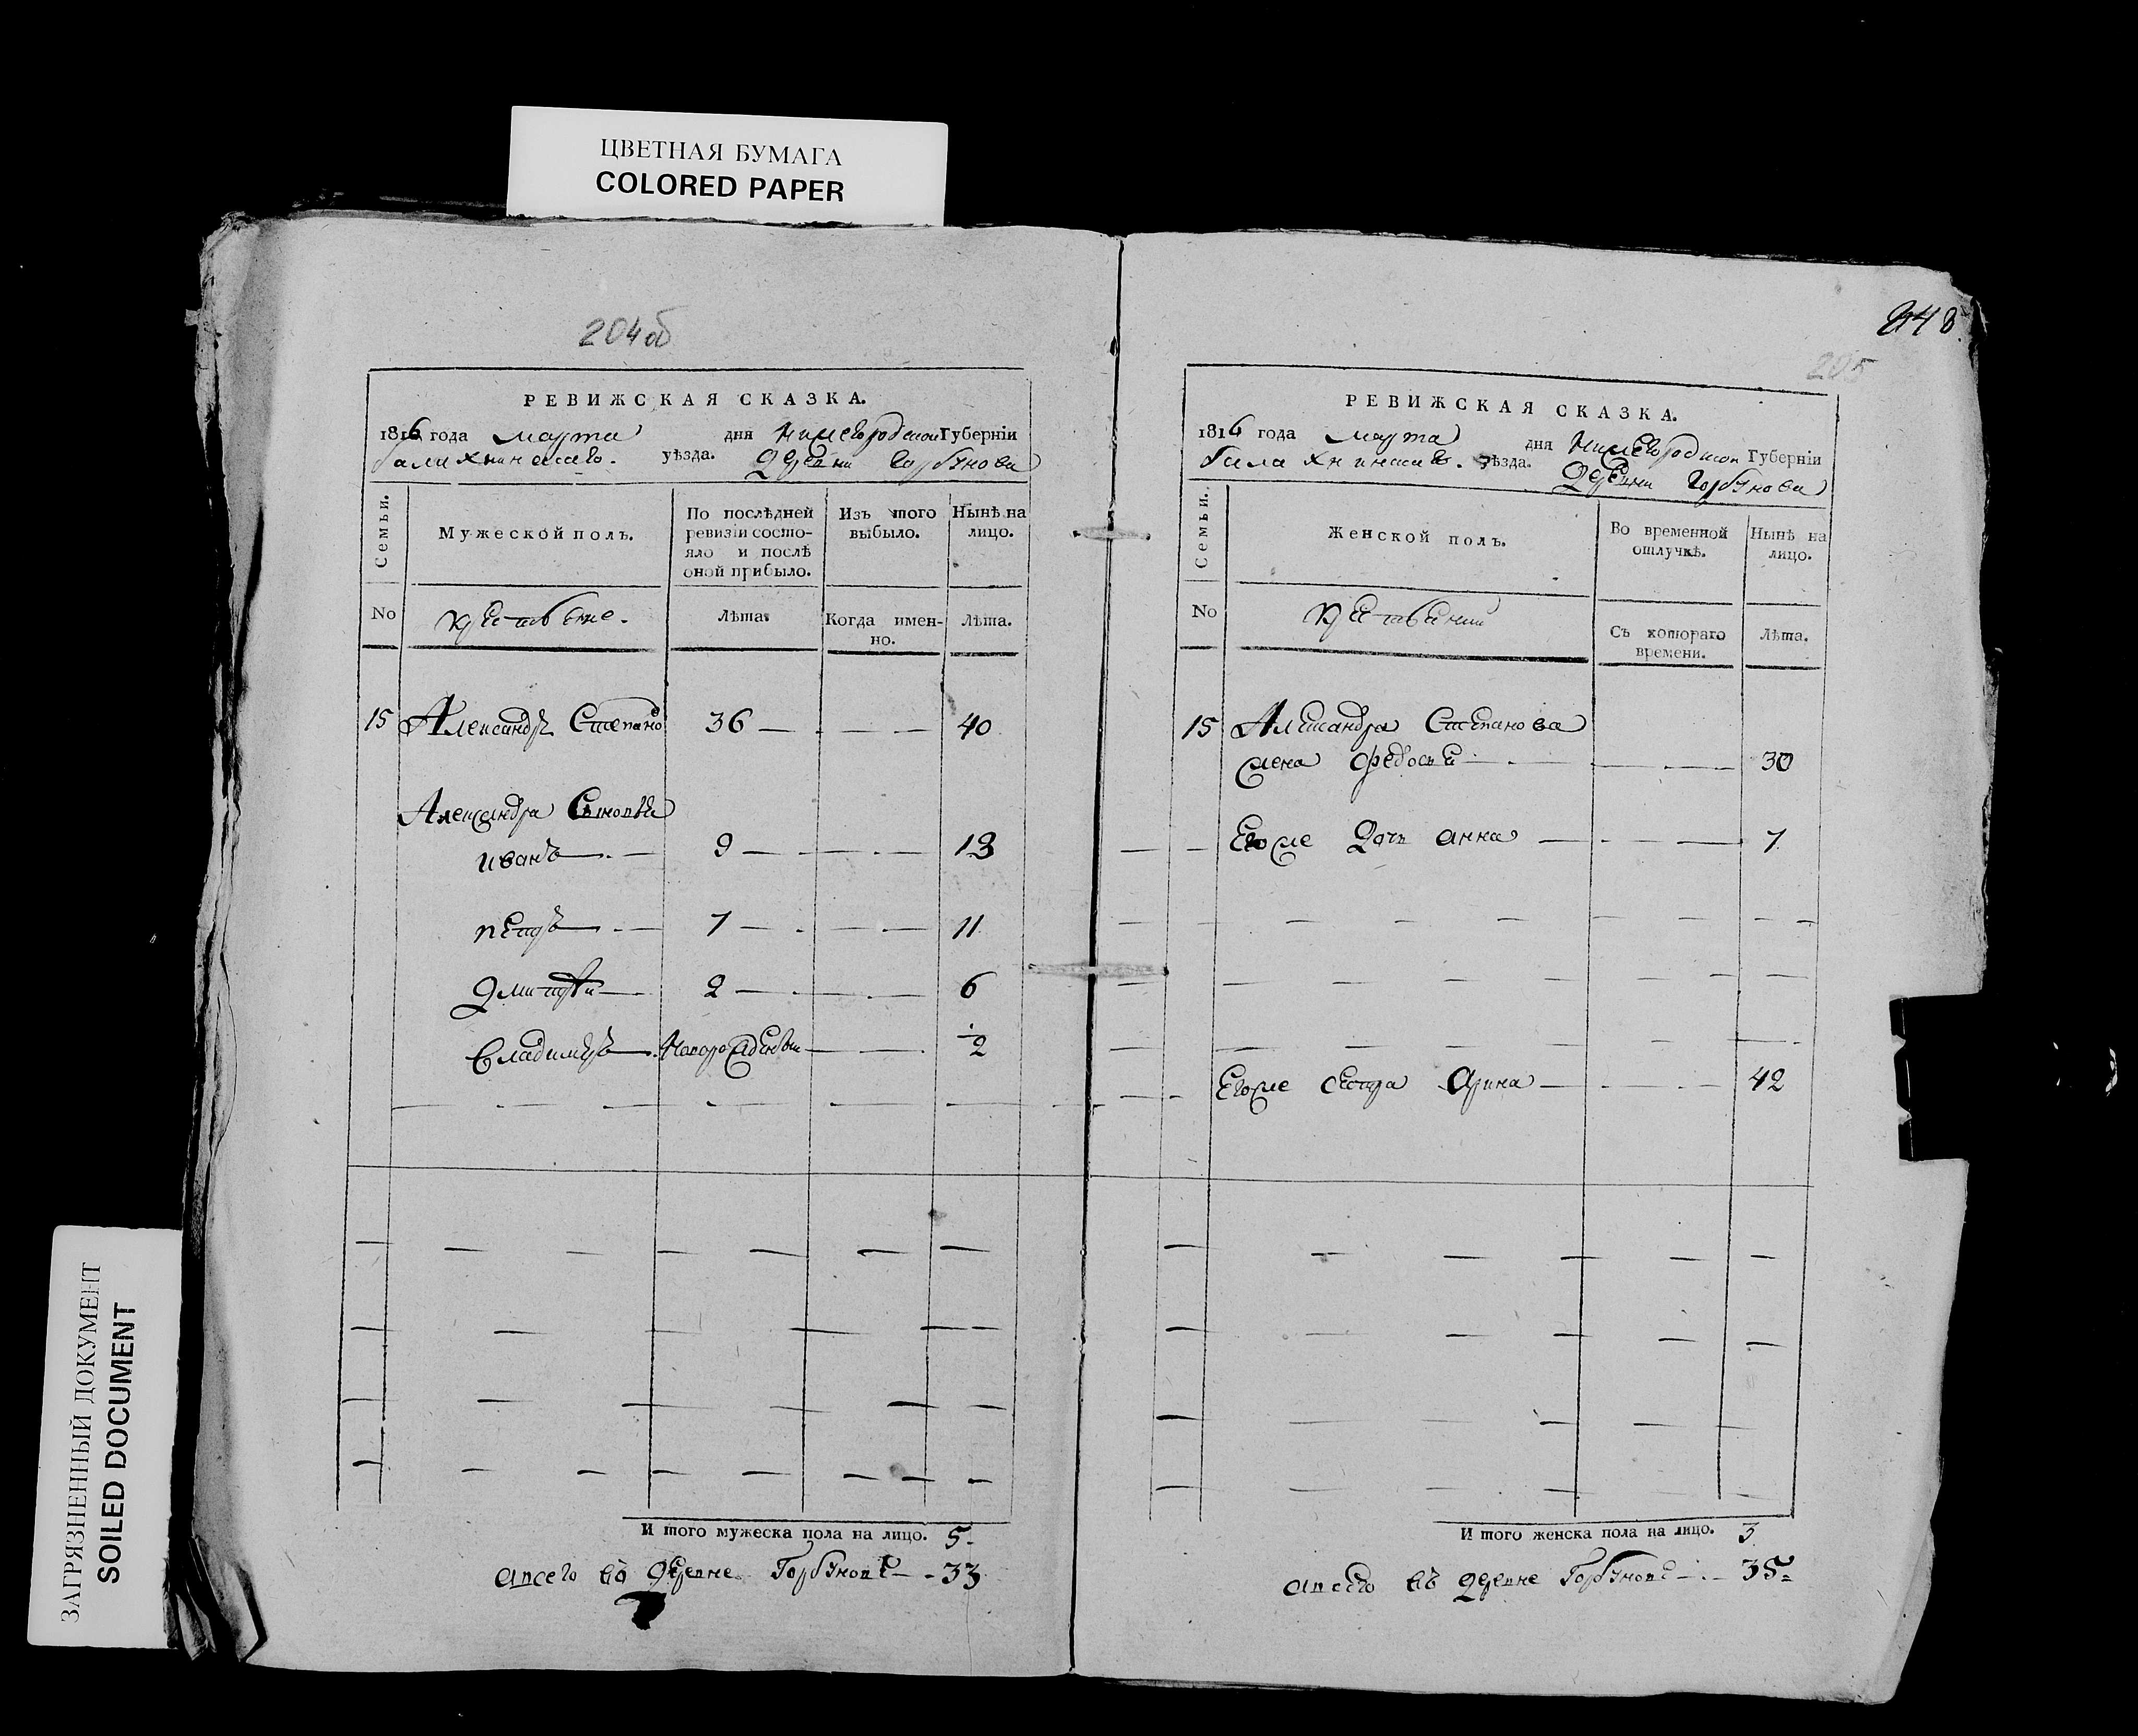 ЦВЕТНАЯ БУМАГА
COLORED PAPER
ЗАГРЯЗНЕННЫЙ ДОКУМЕНТ
SOILED DOCUMENT
204об
РЕВИЖСКАЯ СКАЗКА.
1816 года марта дня Нижегородской Губернїи
балахнинскаго. уѣзда. Деревни Горбунова
Семьи. Мужеской полъ. По послѣдней ревизїи состояло и послѣ оной прибыло. Изъ того выбыло. Нынѣ на лицо.
No крестьяне. Лѣта. Когда именно. Лѣта.
15 Александръ Степано 36 — 40
Александра Сыновья
иванъ — 9 — 13
петръ — 7 — 11
Дмитрѣи — 2 — 6
Владимеръ — Новорожденъ — 2
И того мужеска пола на лицо. 5
авсего въ деревне Горбуновѣ — 33
248
205
РЕВИЖСКАЯ СКАЗКА.
1816 года марта дня Нижегородской Губернїи
балахнинскаго. уѣзда. Деревни Горбунова
Семьи. Женской полъ. Во временной отлучкѣ. Нынѣ на лицо.
No Съ котораго времени. Лѣта.
15 Александра Степанова
жена Федосья — 30
Егоже Дочь анна — 7
Егоже сестра Арина — 42
И того женска пола на лицо. 3
авсего въ деревне Горбуновѣ — 35